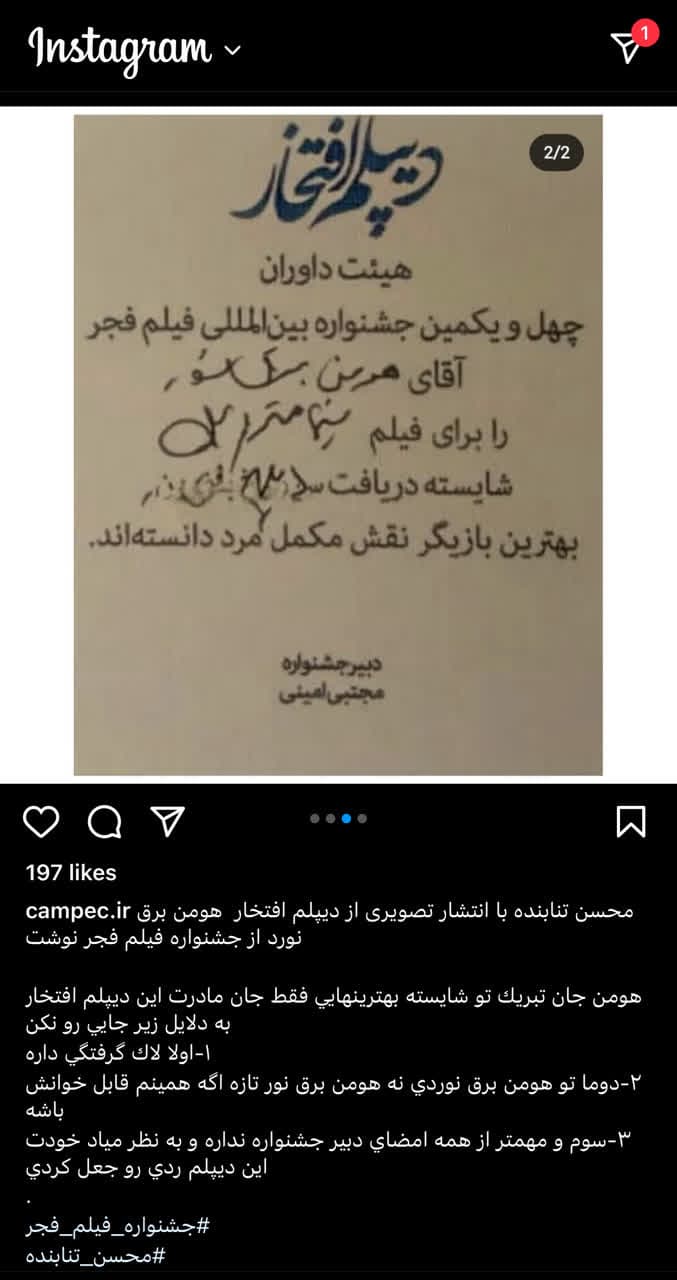 Instagram
1
2/2
دیپلم افتخار
هیئت داوران
چهل و یکمین جشنواره بین‌المللی فیلم فجر
آقای هومن برق نور
را برای فیلم سینما متروپل
شایسته دریافت
بهترین بازیگر نقش مکمل مرد دانسته‌اند.
دبیر جشنواره
مجتبی امینی
197 likes
campec.ir محسن تنابنده با انتشار تصویری از دیپلم افتخار هومن برق
نورد از جشنواره فیلم فجر نوشت
هومن جان تبريك تو شايسته بهترينهايي فقط جان مادرت اين ديپلم افتخار
به دلايل زير جايي رو نكن
١-اولا لاك گرفتگي داره
٢-دوما تو هومن برق نوردي نه هومن برق نور تازه اگه همينم قابل خوانش
باشه
٣-سوم و مهمتر از همه امضاي دبير جشنواره نداره و به نظر مياد خودت
اين ديپلم ردي رو جعل كردي
.
#جشنواره_فیلم_فجر
#محسن_تنابنده